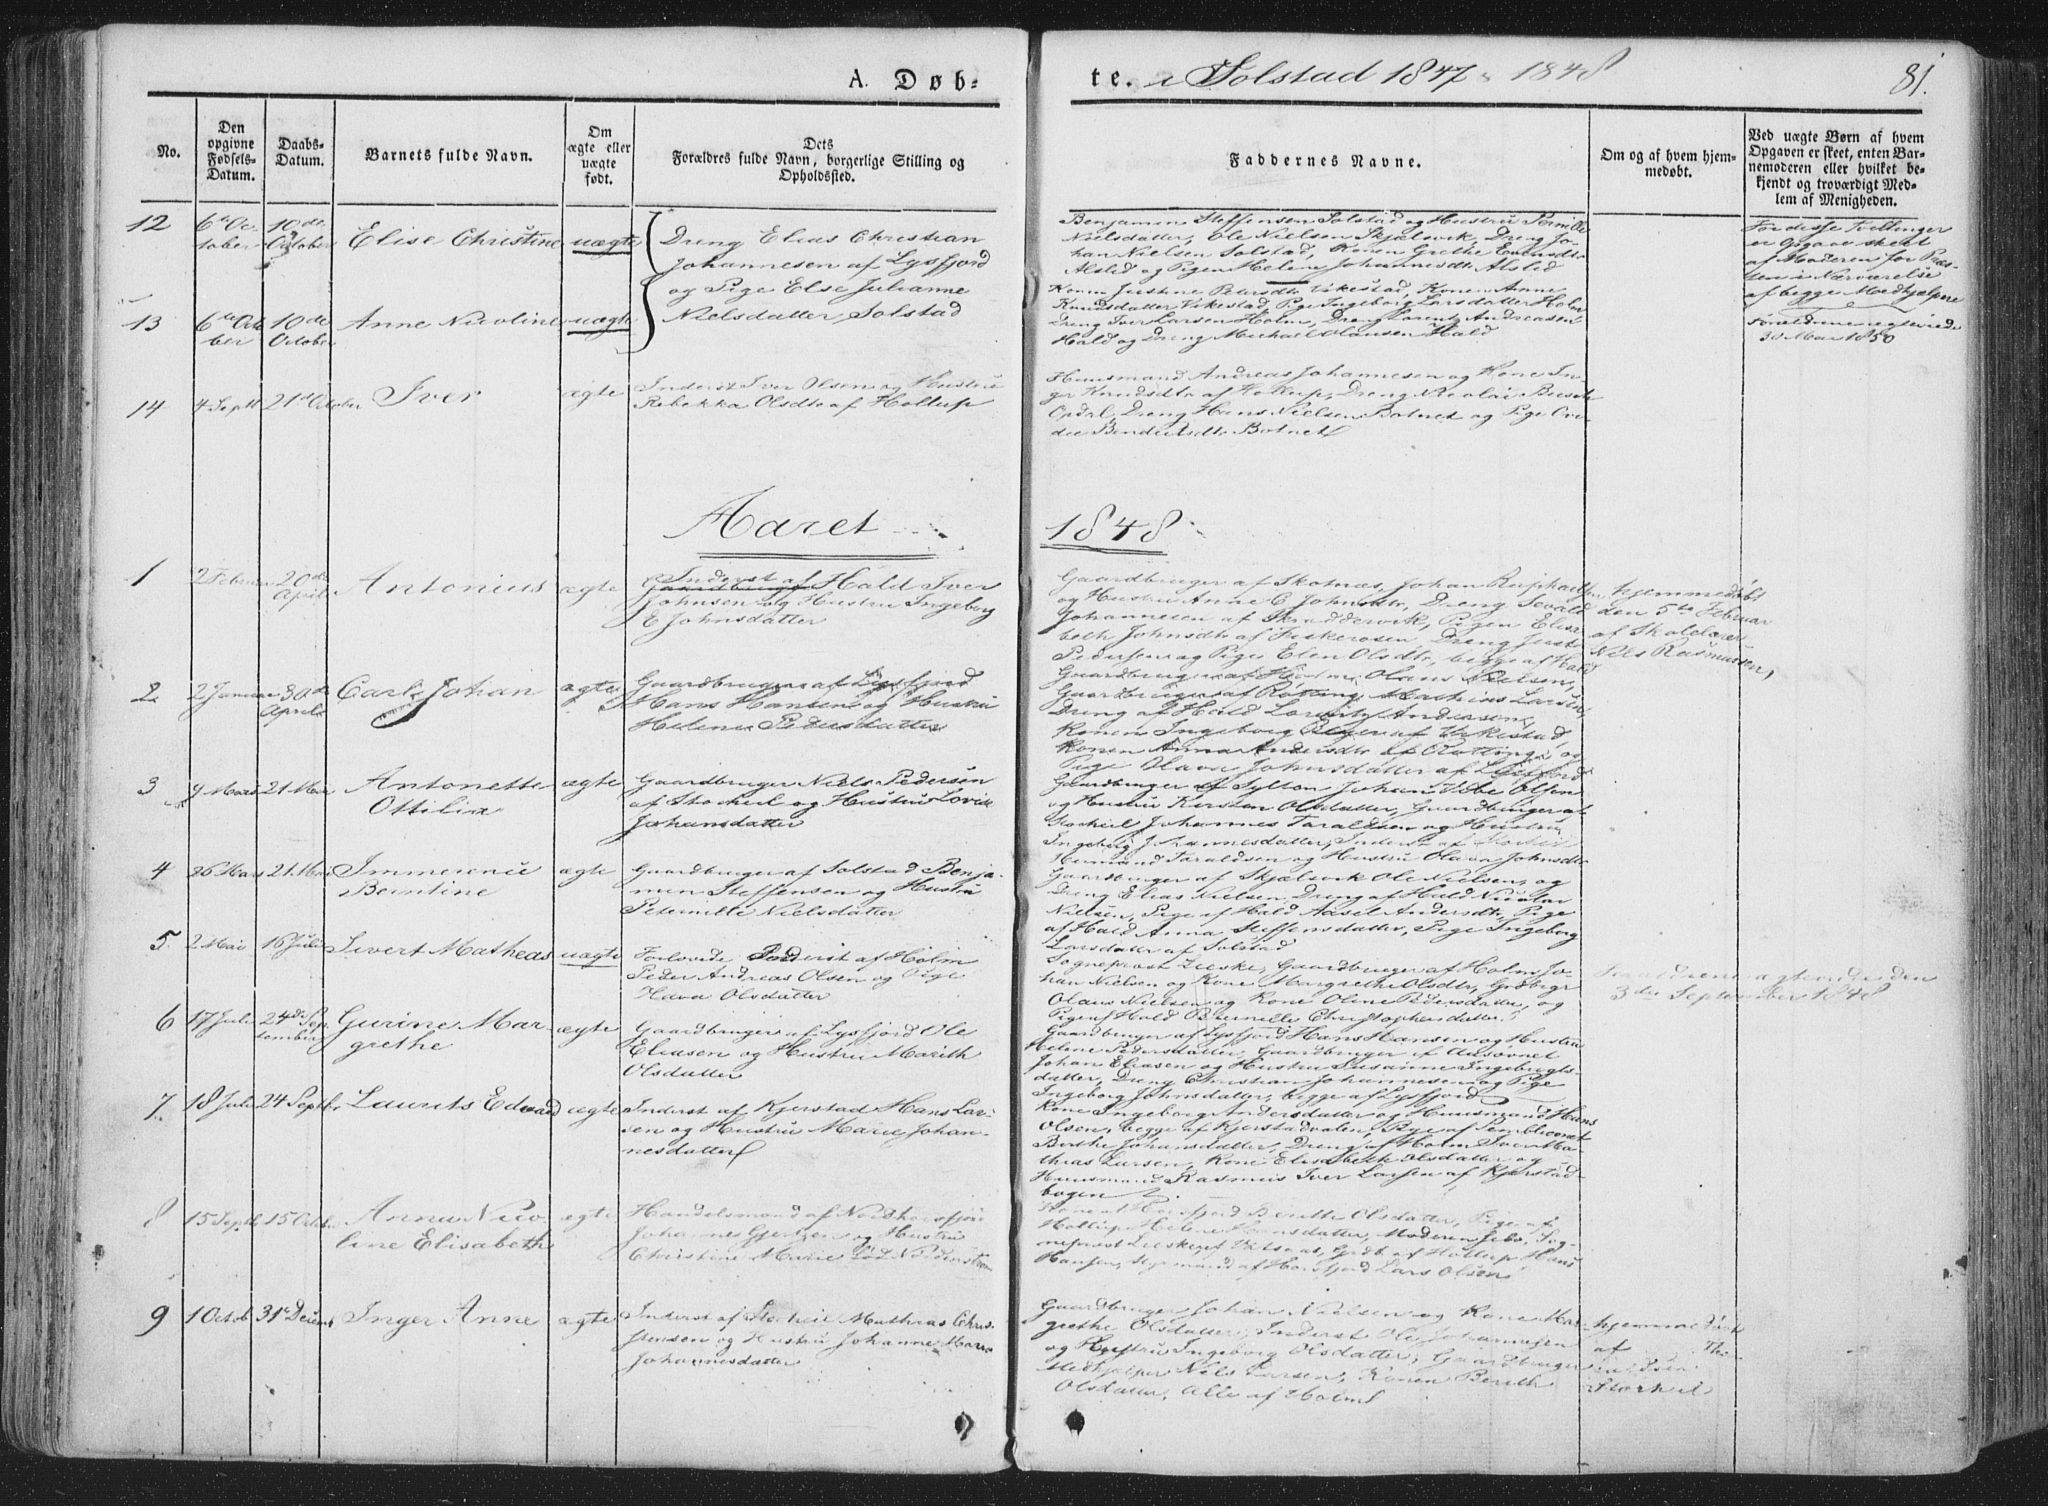 A. Døb-
te. i Solstad 1847 & 1848
81.
No.
Den opgivne Fødsels-Datum.
Daabs-Datum.
Barnets fulde Navn.
Om ægte eller uægte født.
Dets Forældres fulde Navn, borgerlige Stilling og Opholdssted.
Faddernes Navne.
Om og af hvem hjemmedøbt.
Ved uægte Børn af hvem Opgaven er skeet, enten Barnemoderen eller hvilket bekjendt og troværdigt Medlem af Menigheden.
12
6te Oc-
tober
10de
October
Elise Christine
uægte
Dreng Elias Christian
Johannesen af Lysfjord
og Pige Else Julianne
Nielsdatter, Solstad
Benjamin Steffensen Solstad og Hustru Pernille
Nielsdatter, Ole Nielsen Skjælsvik, Dreng Jo-
han Nielsen Solstad, Konen Grethe Evensdtr
Alsted og Pigen Helene Johannesdtr Alsted
For disse Tvillinger
er Opgave skeet
af Moderen for Præs-
ten i Nærværelse
af begge Medhjælpere
13
6te Octo
ber
10de
October
Anne Nicoline
uægte
Konen Justine Petersdtr Vikestad, Konen Anne
Knudsdatter Vikestad, Pige Ingeborg Larsdatter Holm
Dreng Iver Larsen Holm, Dreng Lorents Andreasen
Hald og Dreng Michael Olausen Hald
Forældrene egteviede
30 Mai 1850
14
4 Septb
21de October
Iver
ægte
Inderst Iver Olsen og Hustru
Rebekka Olsdtr af Hollup
Huusmand Andreas Johannesen og Kone In-
ger Knudsdtr af Hollup, Dreng Nicolai Busch
Opdal, Dreng Hans Nielsen Botnet og Pige Ove-
die Bendiksdtr Botnet
Aaret
1848
1
2 Februar
20de
April
Antonius
ægte
Inderst af Hald Iver
Johnsen og Hustru Ingeborg
E Johnsdatter
Gaardbruger af Skotnæs, Johan Raphaelsen
og Hustru Anne E Johnsdtr, Dreng Sevald
Johannesen af Skraddervik, Pigen Elisa-
beth Johnsdtr af Fiskerosen, Dreng Just
Pedersen og Pige Elen Olsdtr, begge af Hald
hjemmedøbt
den 5te Februar
af Skolelærer
Nils Rasmussen,
2
2 Januar
30de
April
Carl Johan
ægte
Gaardbruger af Lysfjord
Hans Hansen og Hustru
Helene Pedersdatter
Gaardbruger af Holm Olaus Nielsen,
Gaardbruger af Røtting Mathias Larsen,
Dreng af Hald Lorents Andersen,
Konen Ingeborg Beyer af Vikestad,
Konen Anna Andersdtr af Røtting og
Pige Olava Johnsdatter af Lysfjord
3
9 Mars
21 Mai
Antonette
Ottilia
ægte
Gaardbruger Niels Pedersen
af Storheil og Hustru Lovise
Johansdatter
Gaardbruger af Sylten Johan Vibe Olsen
og Hustru Kirsten Olsdatter, Gaardbruger af
Storheil Johannes Taraldsen og Hustru
Ingeborg J. Hannesdatter, Inderst af Storheil
Hermand Taraldsen og Hustru Olava Johnsdtr
4
26 Mars
21 Mai
Immerensi
Berntine
ægte
Gaardbruger af Solstad Benja-
min Steffensen og Hustru
Peternille Nielsdatter
Gaardbruger af Skjælsvik Ole Nielsen, og
Dreng Elias Nielsen, Dreng af Hald Nicolai
Nielsen, Pige af Hald Aasel Andersdtr, Pige
af Hald Anna Steffensdatter, Pige Ingeborg
Larsdatter af Solstad
5
2 Mai
16 Juli
Sivert Matheas
uægte
Forlovede Inderst af Holm
Peder Andreas Olsen og Pige
Hava Olsdatter
Sogneprest Zieske, Gaardbruger af Holm Jo-
han Nielsen og Kone Margrethe Olsdtr, Grdbrgr
Olaus Nielsen og Kone Oline Pedersdatter, og
Pige af Hald Pernille Christophersdatter
Forældrene egteviede den
3die September 1848
6
17 Juli
24de Sep-
tember
Gurine Mar-
grethe
ægte
Gaardbruger af Lysfjord Ole
Eliasen og Hustru Marith
Olsdatter
Gaardbruger af Lysfjord Hans Hansen og Hustru
Helene Pedersdatter, Gaardbruger af Aasovnet
Johan Eliasen og Hustru Susanne Ingebrigts-
datter, Dreng Christian Johannesen og Pige
Ingeborg Johnsdatter, begge af Lysfjord
7
18 Juli
24 Septbr
Laurits Edvard
ægte
Inderst af Kjerstad Hans Lar-
sen og Hustru Marie Johan-
nesdatter
Kone Ingeborg Andersdatter og Huusmand Hans
Olsen, begge af Kjerstadvalen, Pige af Semblieovnet
Berthe Johansdatter, Dreng af Holm Iver Ma-
thias Larsen, Kone Elisabeth Olsdatter og
Huusmand Rasmus Iver Larsen af Kjerstad-
bogen
8
15 Septb
15 Octobr
Anna Nico-
line Elisabeth
ægte
Handelsmand af Nordhorsfjord
Johannes Gjertsen og Hustru
Christine Marie Lød N Pedenstrøm
Kone af Horsfjord Berith Olsdatter, Pige af
Hollup Helene Hansdatter, Moderen selv, Sog-
neprest Zieske af Vatsaas, Grdb af Hollup Hans
Hansen, Styrmand af Horsfjord Lars Olsen
9
1 Octob
31te Decemb
Inger Anne
ægte
Inderst af Storheil Mathias Chris-
tensen og Hustru Johanne Maria
Johannesdatter
Gaardbruger Johan Nielsen og Kone Mar-
grethe Olsdatter, Inderst Ole Johannesen
og Hustru Ingeborg Olsdatter, Gaardbruger
Medhjælper Nils Larsen, Konen Berith
Olsdatter, Alle af Holm
hjemmedøbt
af
Storheil